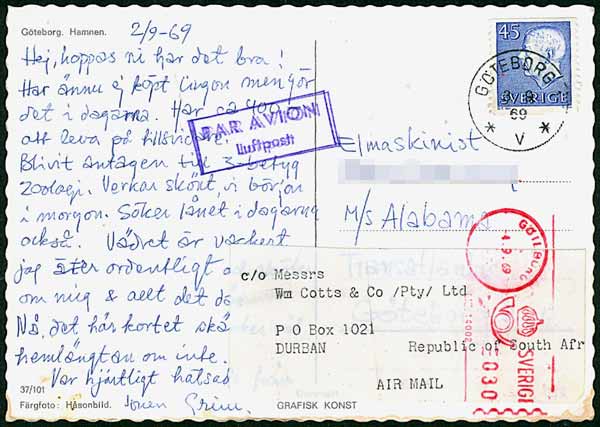 Göteborg. Hamnen.
2/9-69
Hej, hoppas ni har det bra!
Har ännu ej köpt lingon men gör
det i dagarna. Har ca 400
att leva på tills vidare.
Blivit antagen till 3-betyg
Zoologi. Verkar skönt, vi börjar
i morgon. Söker lånet i dagarna
också. Vädret är vackert
jag äter ordentligt
om mig & allt det
Nå, det här kortet ska
hemlängtan om inte.
Var hjärtligt hälsad
37/101
Färgfoto: Håsonbild.
GRAFISK KONST
PAR AVION
Luftpost
45
SVERIGE
GÖTEBORG
69
V
Elmaskinist
M/s Alabama
c/o Messrs
Wm Cotts & Co /Pty/ Ltd
P O Box 1021
DURBAN Republic of South Afr
AIR MAIL
GÖTEBORG
-4.9.69
SVERIGE
030